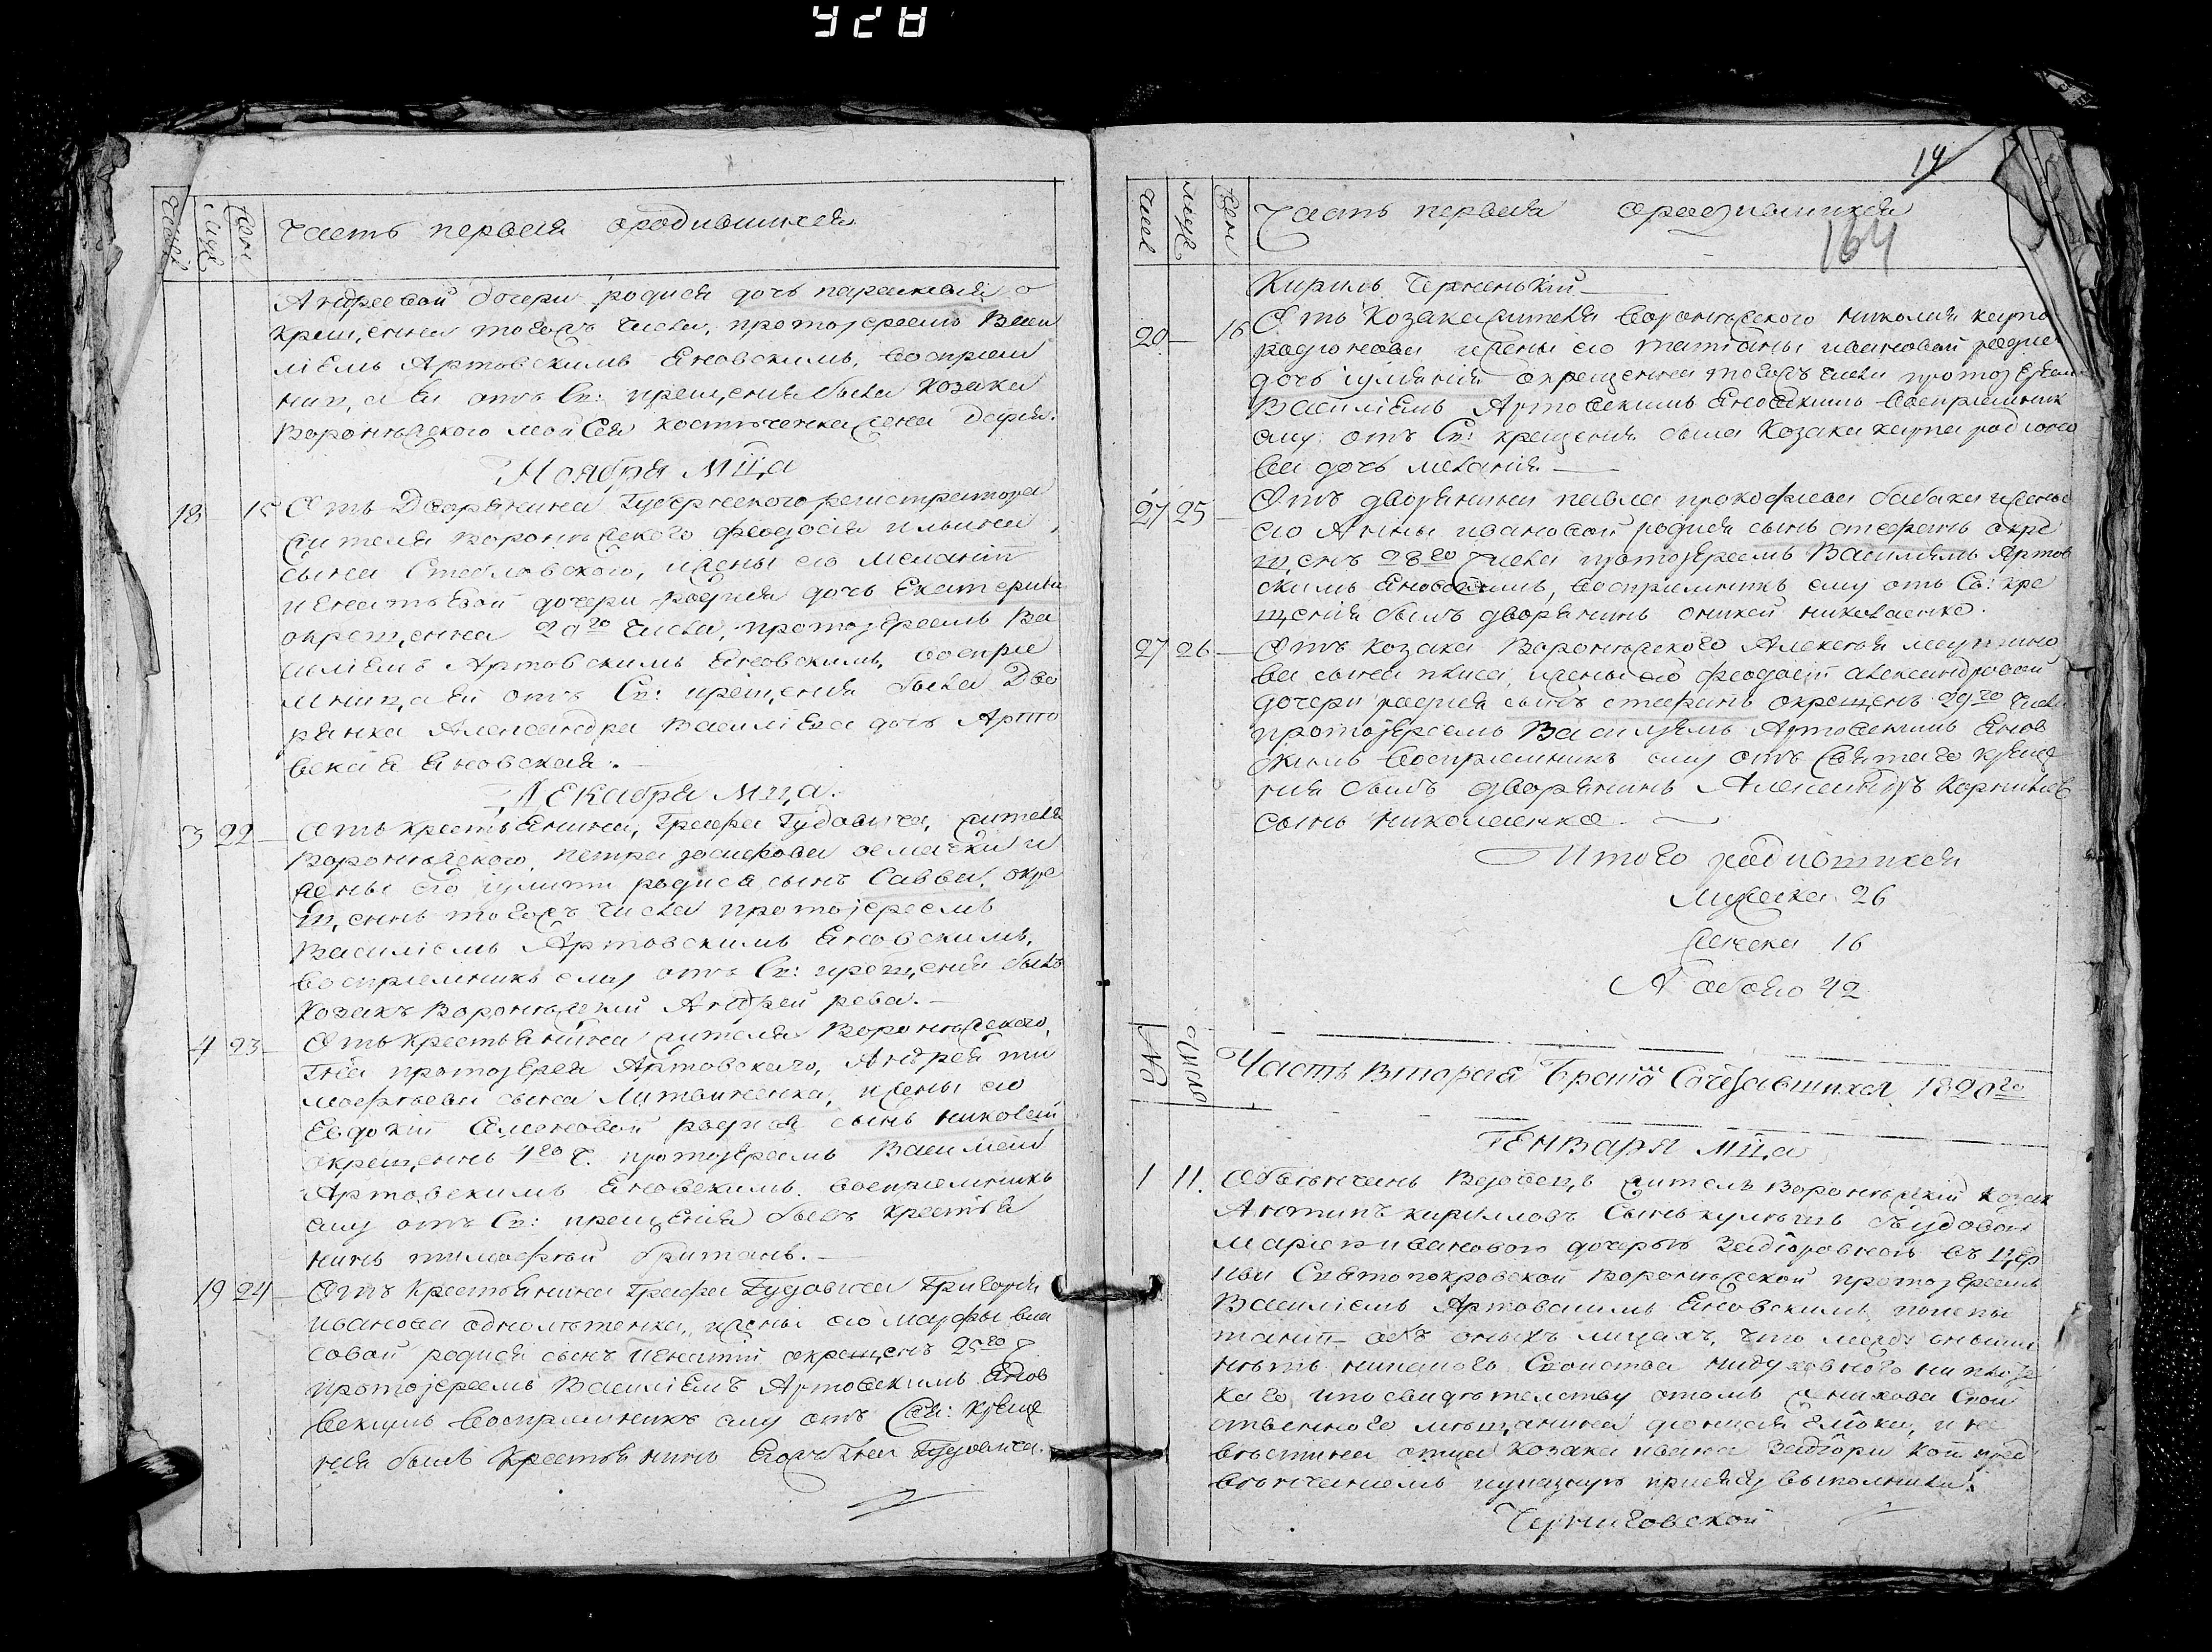 928
Числ
муж
жен
Часть первая ородившихся
Андреевой дочери родися дочь параскевия о
крещенна тогожъ числа, протоіереемъ Васи
ліемъ Артовскимъ Яновскимъ, воспріем
ница ея отъ Св: крещения была козака
Воронѣжского Мойсея костюченка жена
Ноября мца
18 15 Отъ Дворянина Губернского регистратора
жителя воронѣжского феодосія ильина
сына Стебловского, ижены его меланіи
игнатьевой дочери родися дочь Екатерина
окрещенна 20го числа, протоіереемъ Ва
силіемъ Артовскимъ Яновскимъ, воспріе
мница ей отъ Св: крещенія была Дво
рянка Александра Василіева дочь Арто
вская Яновская.
Декабря мца.
3 22 Отъ крестьянина, Графа Гудовича, жителя
Воронѣжского, петра іосифова и
жены его іулити родися сынъ Савва, окре
щеннъ тогожъ числа протоіереемъ
Василіемъ Артовскимъ Яновскимъ,
воспріемникъ ему отъ Св: крещенія былъ
козакъ Воронѣжский Андрей рева.
4 23 Отъ крестьянина жителя Воронѣжского,
Гна протоіерея Артовского, Андрея ти
мофѣева сына Литвиненка, ижены его
Евдокіи Семеновой родися сынъ николай
окрещеннъ 4го ч. протоіереемъ Василіемъ
Артовскимъ Яновскимъ. воспріемникъ
ему отъ Св: крещенія былъ крестья
нинъ тимофѣй британъ.
19 24 Отъ крестьянина Графа Гудовича Григорія
иванова однолѣтенка, ижены его марфы вла
совой родися сынъ игнатій окрещенъ 25го ч
протоіереемъ Василіемъ Артовскимъ Янов
скимъ воспріемникъ ему отъ Свя: креще
нія былъ крестьянинъ Егожъ Гна Гудовича.
14
Числ
муж
жен
Часть первая ородившихся
164
Кирилъ Черненькій
20 16 Отъ Козака жителя воронѣжского николая карпо
родионова ижены его татіаны ивановой родися
дочь іуліанія окрещенна тогожъ числа протоіерем
Василіемъ Артовскимъ Яновскимъ воспріемник
ему отъ Св: крещенія была Козака карпа родіоно
ва дочь меланія.
27 25 Отъ дворянина павла прокофіева бабаки ижены
его Анны ивановой родися сынъ стефанъ окре
щенъ 28го числа протоіереемъ Василіемъ Артов
скимъ Яновскимъ, воспріемникъ ему отъ Св: кре
щенія былъ дворянинъ николаенко.
27 26 Отъ козака Воронѣжского Алексѣя мартино
ва сына ижены его феодосіи александровой
дочери родися сынъ стефанъ окрещенъ 29го числ
протоіереемъ Василіемъ Артовскимъ Янов
скимъ воспріемникъ ему отъ Святаго креще
нія былъ дворянинъ Александръ Корнилов
сынъ николаенко.
Итого родившихся
Мужеска 26
женска 16
А обоего 42
№
число
Часть вторая бракомъ Сочетавшихся 1820го
Генваря мца
1 11. Обвѣнчанъ Вдовецъ житель воронѣжскій козак
Антипъ кирилловъ сынъ
Маріею ивановою дочерью въ цер
кви Святопокровской воронѣжской протоіереемъ
Василіемъ Артовскимъ Яновскимъ, по
таніи объ оныхъ лицахъ, что между оными
нѣтъ никакого Свойства нидуховного ни плотс
каго, и по свидѣтелству отомъ жениховa Свой
ственного мѣщанина и не
вѣстина отца козака ивана кои пред
вѣнчаніемъ присягу выполнили:
Черниговской